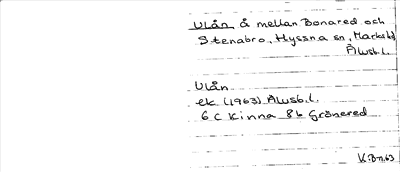 Ulån å mellan Bonared och
Stenabro, Hyssna sn, Marks hd
Älvsb.l.
Ulån
ek (1963) Älvsb.l.
6 C Kinna 8b Grönered
K.Bn.63